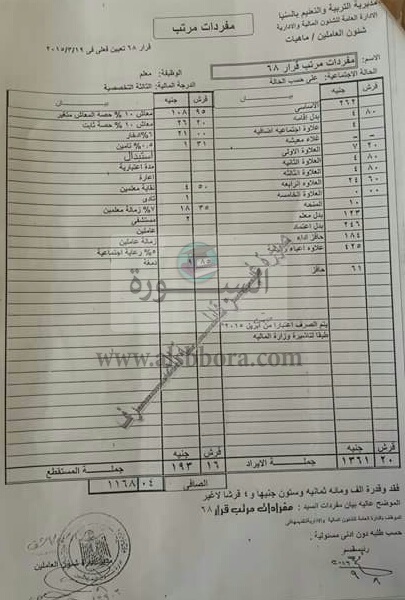 مديرية التربية والتعليم بالمنيا
الادارة العامة للشئون المالية والادارية
شئون العاملين / ماهيات
مفردات مرتب
قرار ٦٨ تعيين فعلى فى ٢٠١٥/٣/١٩
الاسم: مفردات مرتب قرار ٦٨
الوظيفة: معلم
الحالة الاجتماعية: على حسب الحالة
الدرجة المالية: الثالثة التخصصية
قرش جنيه بيــان قرش جنيه بيــان
٢٦٢ الاساسى
٨٠ ٤ بدل اقامه
٤ علاوة اجتماعيه اضافيه
علاوه معيشه
٢٠ ٧ العلاوة الاولى
٨٠ ٤ العلاوه الثانيه
٨٠ ٤ العلاوة الثالثه
٦٠ ٢٤ العلاوه الرابعه
٠٠ ٠ العلاوة الخامسه
١٠ المنحه
١٢٣ بدل معلم
٢٤٦ بدل اعتماد
١٨٤ حافز اداء
٤٢٥ علاوه اعباء
٦١ حافز
يتم الصرف اعتبارا من ابريل ٢٠١٥
طبقا لتاشيرة وزارة المالية
٩٥ ١٠٨ معاش ١٠ % حصة المعاش متغير
٢٠ ٢٦ معاش ١٠ % حصة ثابت
٠٠ ٢١ ٦%ادخار
٣١ ١ ٠.٥% تامين
استبدال
مدة اعتبارية
اعارة
٥٠ ٤ نقابة معلمين
١ نادى
٣٥ ١٨ ٧% زمالة معلمين
٢ مستشفى
عاملين
زمالة عاملين
٥% رعاية اجتماعية
٨٥ دمغة
السبورة
www.alsbbora.com
قرش جنيه قرش جنيه
٢٠ ١٣٦١ جملــة الايراد ١٦ ١٩٣ جملــة المستقطع
٠٤ ١١٦٨ الصافى
فقد وقدرة الف ومائه ثمانيه وستون جنيها و٤ قرشا لاغير
الموضح عاليه بيان مفردات السيد : مفردات مرتب قرار ٦٨
حسب طلبه دون ادنى مسئولية :
رئيس قسم
شئون العاملين